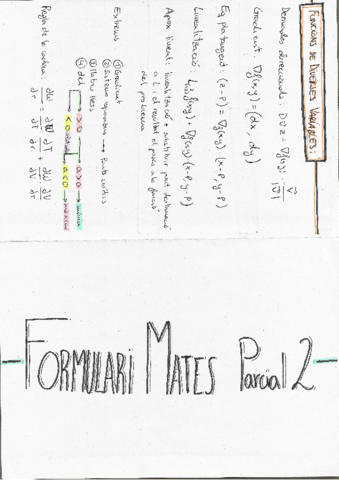 FUNCIONS DE DIVERSES VARIABLES:
Derivades direccionals: D v z = ∇f(x,y) · v⃗ / |v⃗|
Gradient: ∇f(x,y) = (dx, dy)
Eq pla tangent: (z-P) = ∇f(x,y) · (x-P, y-P)
Linealització: L = f(x,y) + ∇f(x,y) · (x-P, y-P)
Aprox lineal: linealització i substituir punt
a L i el resultat el poses a la funció
del problema
Extrems
① Gradient
② Sistema equacions → Punts crítics
③ Matriu Hess
④ det
> 0 → a > 0
< 0 a < 0
Regla de la cadena: ∂W/∂r = ∂W/∂T · ∂T/∂r + ∂W/∂V · ∂V/∂r
FORMULARI MATES Parcial 2